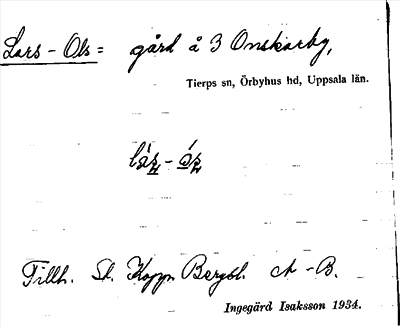 Lars-Ols= gård å 3 Onskarby,
Tierps sn, Örbyhus hd, Uppsala län.
Tillh. St. Kopp. Bergsl. A-B.
Ingegärd Isaksson 1934.